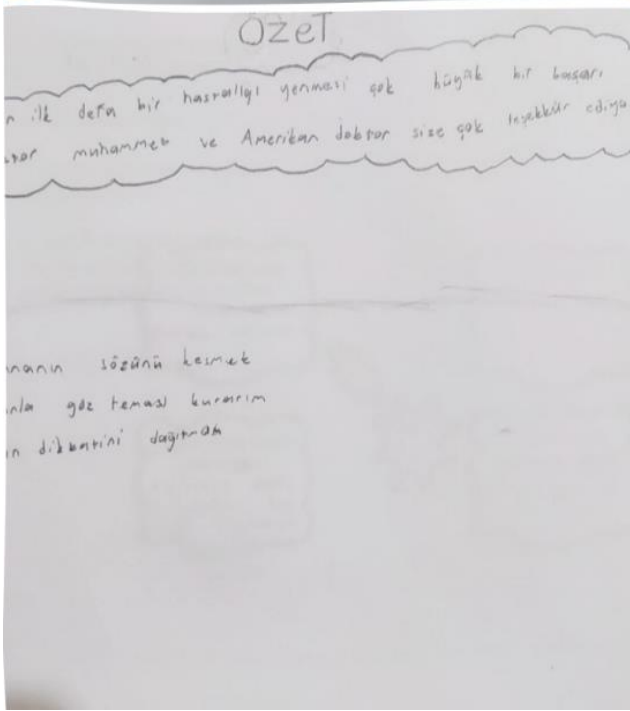 Özet
ilk defa bir hastalığı yenmesi çok büyük bir başarı
muhammet ve Amerikan doktor size çok teşekkür
sözünü kesmek
göz teması kurarım
dikkatini dağıtmam